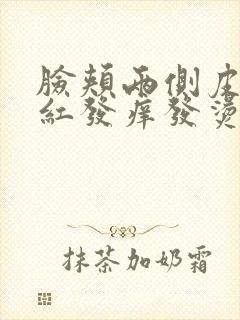 臉頰兩側皮
紅發痒發燙
抹茶加奶霜